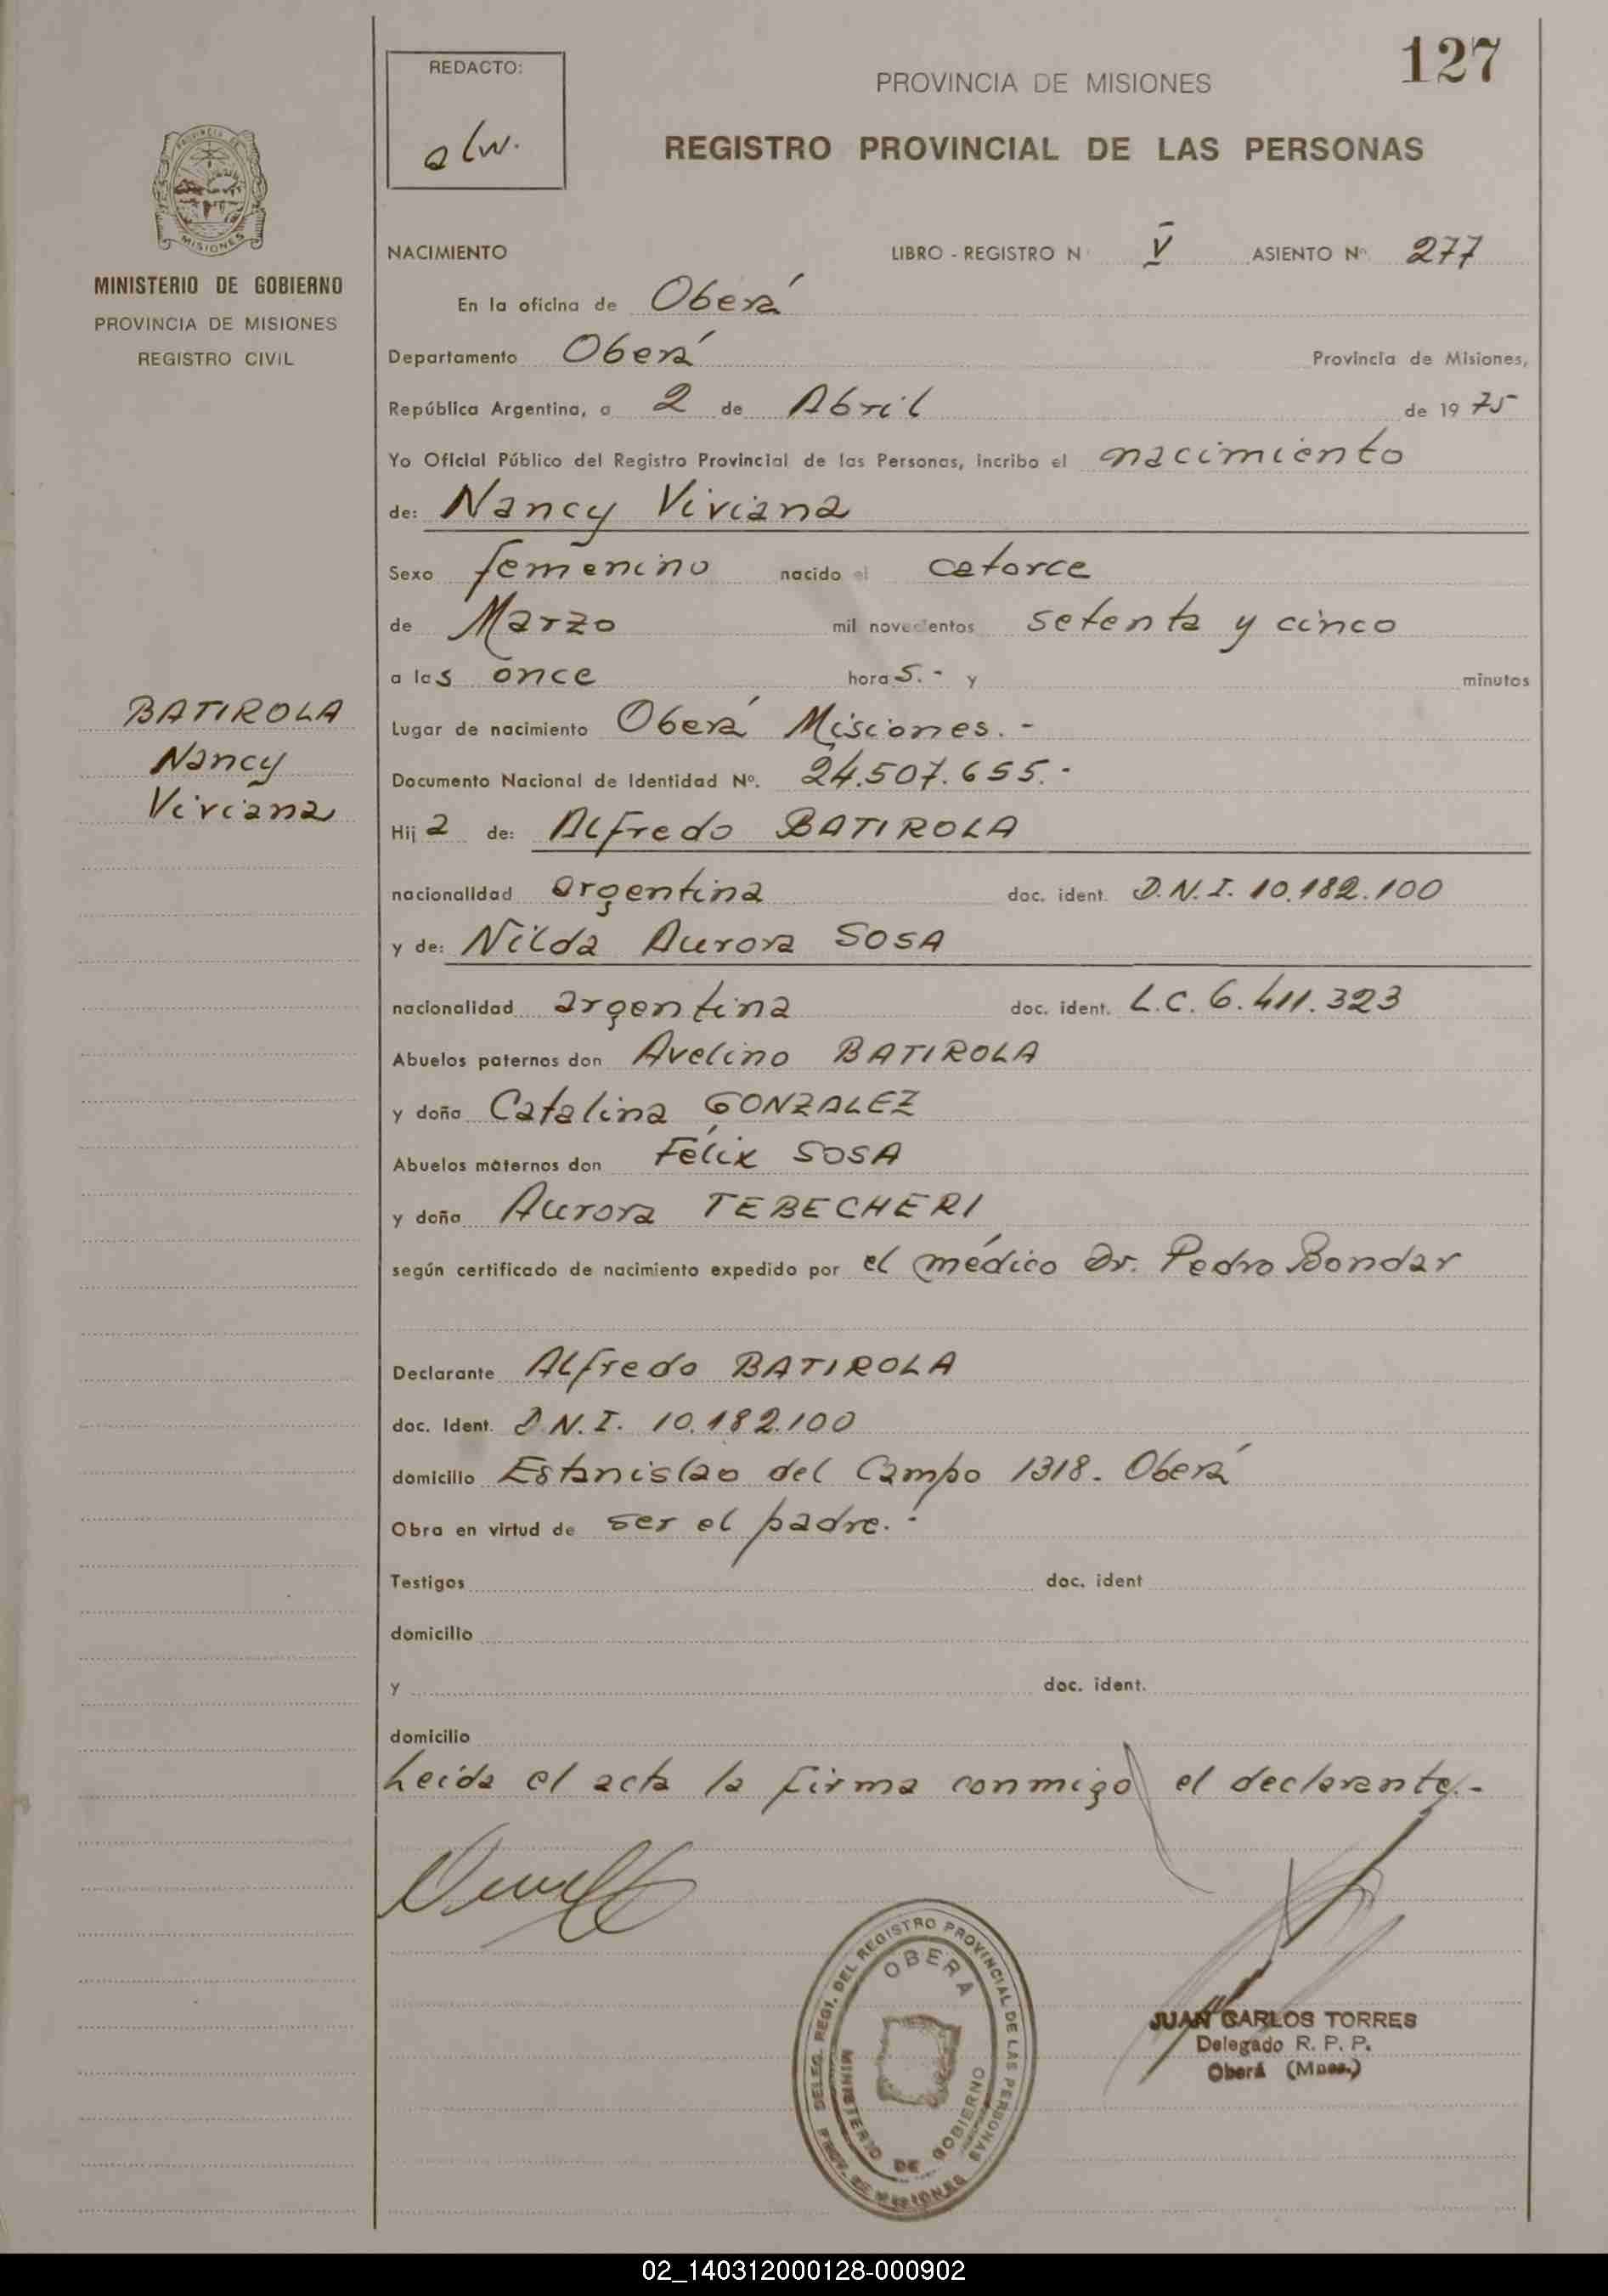 127
REDACTO:
alw.
PROVINCIA DE MISIONES
REGISTRO PROVINCIAL DE LAS PERSONAS
PROVINCIA DE
MISIONES
MINISTERIO DE GOBIERNO
PROVINCIA DE MISIONES
REGISTRO CIVIL
NACIMIENTO LIBRO - REGISTRO N° V ASIENTO N° 277
En la oficina de Oberá
Departamento Oberá Provincia de Misiones,
República Argentina, a 2 de Abril de 1975
Yo Oficial Público del Registro Provincial de las Personas, incribo el nacimiento
de: Nancy Viviana
Sexo femenino nacido el catorce
de Marzo mil novecientos setenta y cinco
a las once horas.- y minutos
BATIROLA
Nancy
Viviana
Lugar de nacimiento Oberá Misiones.-
Documento Nacional de Identidad N°. 24.507.655.-
Hija de: Alfredo BATIROLA
nacionalidad argentina doc. ident. D.N.I. 10.182.100
y de: Nilda Aurora SOSA
nacionalidad argentina doc. ident. L.C. 6.411.323
Abuelos paternos don Avelino BATIROLA
y doña Catalina GONZALEZ
Abuelos maternos don Félix SOSA
y doña Aurora TEBECHERI
según certificado de nacimiento expedido por el médico Dr. Pedro Bondar
Declarante Alfredo BATIROLA
doc. Ident. D.N.I. 10.182.100
domicilio Estanislao del Campo 1318. Oberá
Obra en virtud de ser el padre.-
Testigos doc. ident
domicilio
y doc. ident.
domicilio
Leída el acta la firma conmigo el declarante.-
DELEG. REGI. DEL REGISTRO PROVINCIAL DE LAS PERSONAS
OBERÁ
MINISTERIO DE GOBIERNO
PROV. DE MISIONES
JUAN CARLOS TORRES
Delegado R. P. P.
Oberá (Mnes.)
02_140312000128-000902